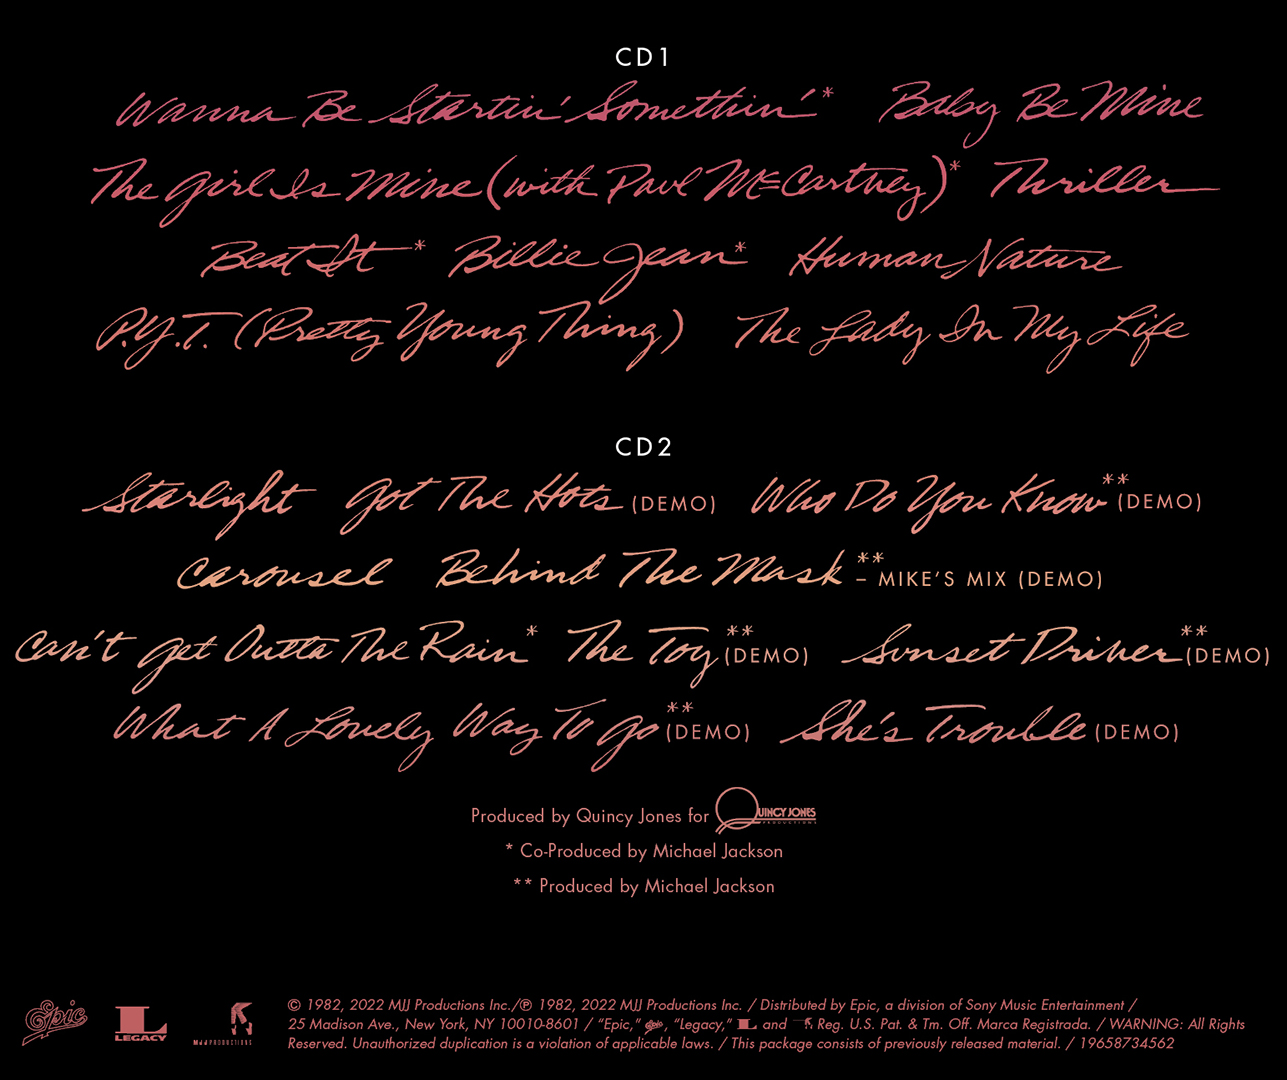 CD1
Wanna Be Startin' Somethin'* Baby Be Mine
The Girl Is Mine (with Paul McCartney)* Thriller
Beat It* Billie Jean* Human Nature
P.Y.T. (Pretty Young Thing) The Lady In My Life
CD2
Starlight Got The Hots (DEMO) Who Do You Know** (DEMO)
Carousel Behind The Mask** – MIKE'S MIX (DEMO)
Can't Get Outta The Rain* The Toy** (DEMO) Sunset Driver** (DEMO)
What A Lovely Way To Go** (DEMO) She's Trouble (DEMO)
Produced by Quincy Jones for QUINCY JONES PRODUCTIONS
* Co-Produced by Michael Jackson
** Produced by Michael Jackson
Epic LEGACY MJJ PRODUCTIONS
© 1982, 2022 MJJ Productions Inc./℗ 1982, 2022 MJJ Productions Inc. / Distributed by Epic, a division of Sony Music Entertainment /
25 Madison Ave., New York, NY 10010-8601 / "Epic," Epic, "Legacy," L and Reg. U.S. Pat. & Tm. Off. Marca Registrada. / WARNING: All Rights
Reserved. Unauthorized duplication is a violation of applicable laws. / This package consists of previously released material. / 19658734562